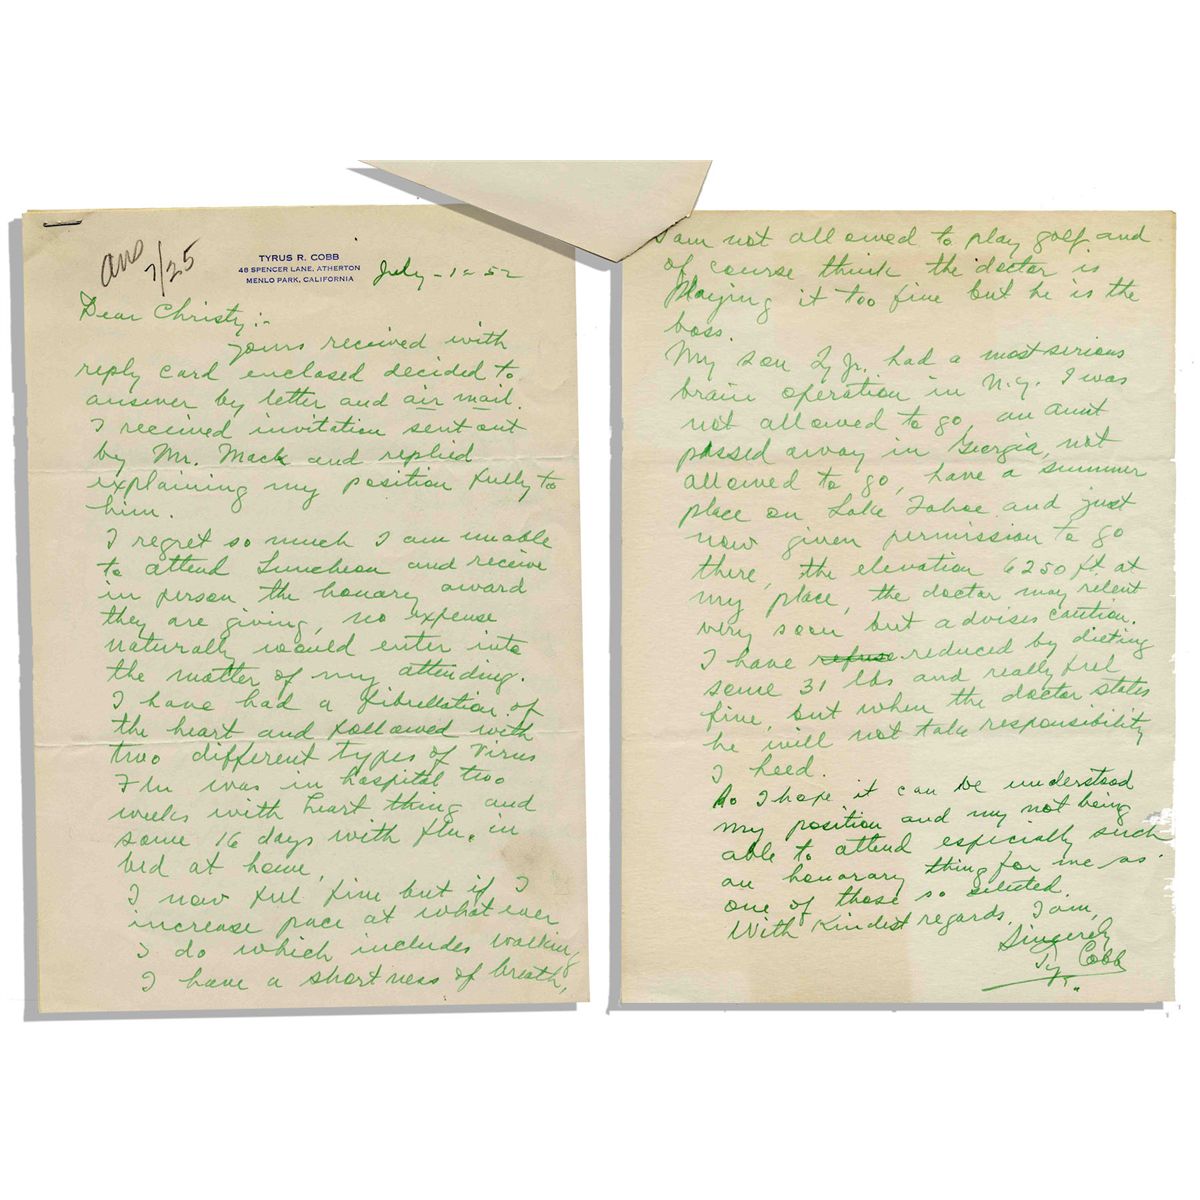 ans 7/25
TYRUS R. COBB
48 SPENCER LANE, ATHERTON
MENLO PARK, CALIFORNIA
July - 1 - 52
Dear Christy:-
yours received with
reply card enclosed decided to
answer by letter and air mail.
I received invitation sent out
by Mr. Mack and replied
explaining my position fully to
him.
I regret so much I am unable
to attend Luncheon and receive
in person the honary award
they are giving, no expense
naturally would enter into
the matter of my attending.
I have had a fibrellation of
the heart and followed with
two different types of Virus
Flu was in hospital two
weeks with heart thing and
some 16 days with flu. in
bed at home,
I now feel fine but if I
increase pace at what ever
I do which includes walking
I have a shortness of breath,
I am not allowed to play golf and
of course think the doctor is
Playing it too fine but he is the
boss.
My son Ty Jr. had a most serious
brain operation in N.Y. I was
not allowed to go an aunt
passed away in Georgia, not
allowed to go, have a summer
place on Lake Tahoe and just
now given permission to go
there, the elevation 6250 ft at
my place, the doctor may relent
very soon but advises caution.
I have refuse reduced by dieting
some 31 lbs and really feel
fine, but when the doctor states
he will not take responsibility
I heed.
So I hope it can be understood
my position and my not being
able to attend especially such
an honorary thing for me as
one of those so selected.
With Kindest regards, I am,
Sincerely
Ty Cobb